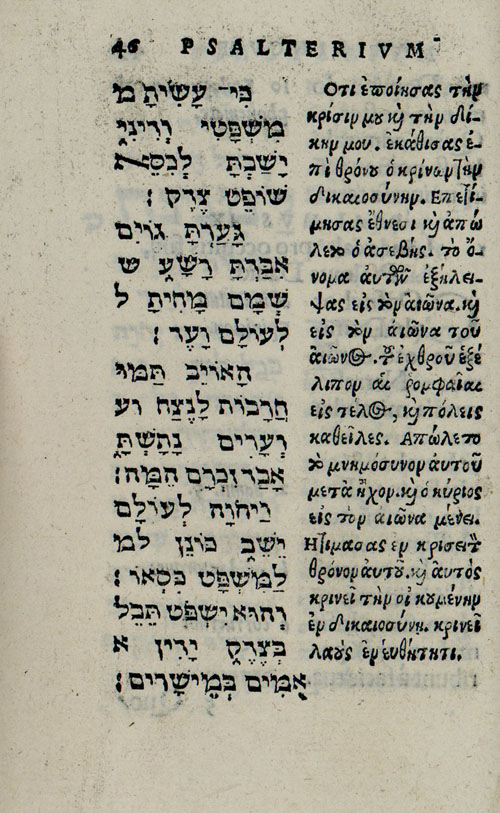 46 PSALTERIVM
כִּי־ עָשִׂיתָ מ
מִשְׁפָּטִי וְדִינִי
יָשַׁבְתָּ לְכִסֵּא
שׁוֹפֵט צֶדֶק׃
גָּעַרְתָּ גוֹיִם
אִבַּדְתָּ רָשָׁע ש
שְׁמָם מָחִיתָ ל
לְעוֹלָם וָעֶד׃
הָאוֹיֵב תַּמּוּ
חֳרָבוֹת לָנֶצַח וע
וְעָרִים נָתַשְׁתָּ
אָבַד זִכְרָם הֵמָּה׃
וַיהֹוָה לְעוֹלָם
יֵשֵׁב כּוֹנֵן למ
לַמִּשְׁפָּט כִּסְאוֹ׃
וְהוּא יִשְׁפֹּט תֵּבֵל
בְּצֶדֶק יָדִין א
אֻמִּים בְּמֵישָׁרִים׃
Οτι ἐποίησας τὴν
κρίσιν μου καὶ τὴν δί-
κην μου. ἐκάθισας ἐ-
πὶ θρόνου ὁ κρίνων τὴν
δικαιοσύνην. Επετί-
μησας ἔθνεσι καὶ ἀπώ
λετο ὁ ἀσεβής. τὸ ὄ-
νομα αὐτῶν ἐξήλει-
ψας εἰς τὸν αἰῶνα. καὶ
εἰς τὸν αἰῶνα τοῦ
αἰῶνος. Τοῦ ἐχθροῦ ἐξέ
λιπον αἱ ῥομφαῖαι
εἰς τέλος, καὶ πόλεις
καθεῖλες. Απώλετο
τὸ μνημόσυνον αὐτοῦ
μετὰ ἤχου. καὶ ὁ κύριος
εἰς τὸν αἰῶνα μένει.
Ητίμασας ἐν κρίσει τὸν
θρόνον αὐτοῦ. καὶ αὐτὸς
κρινεῖ τὴν οἰκουμένην
ἐν δικαιοσύνῃ. κρινεῖ
λαοὺς ἐν εὐθύτητι.